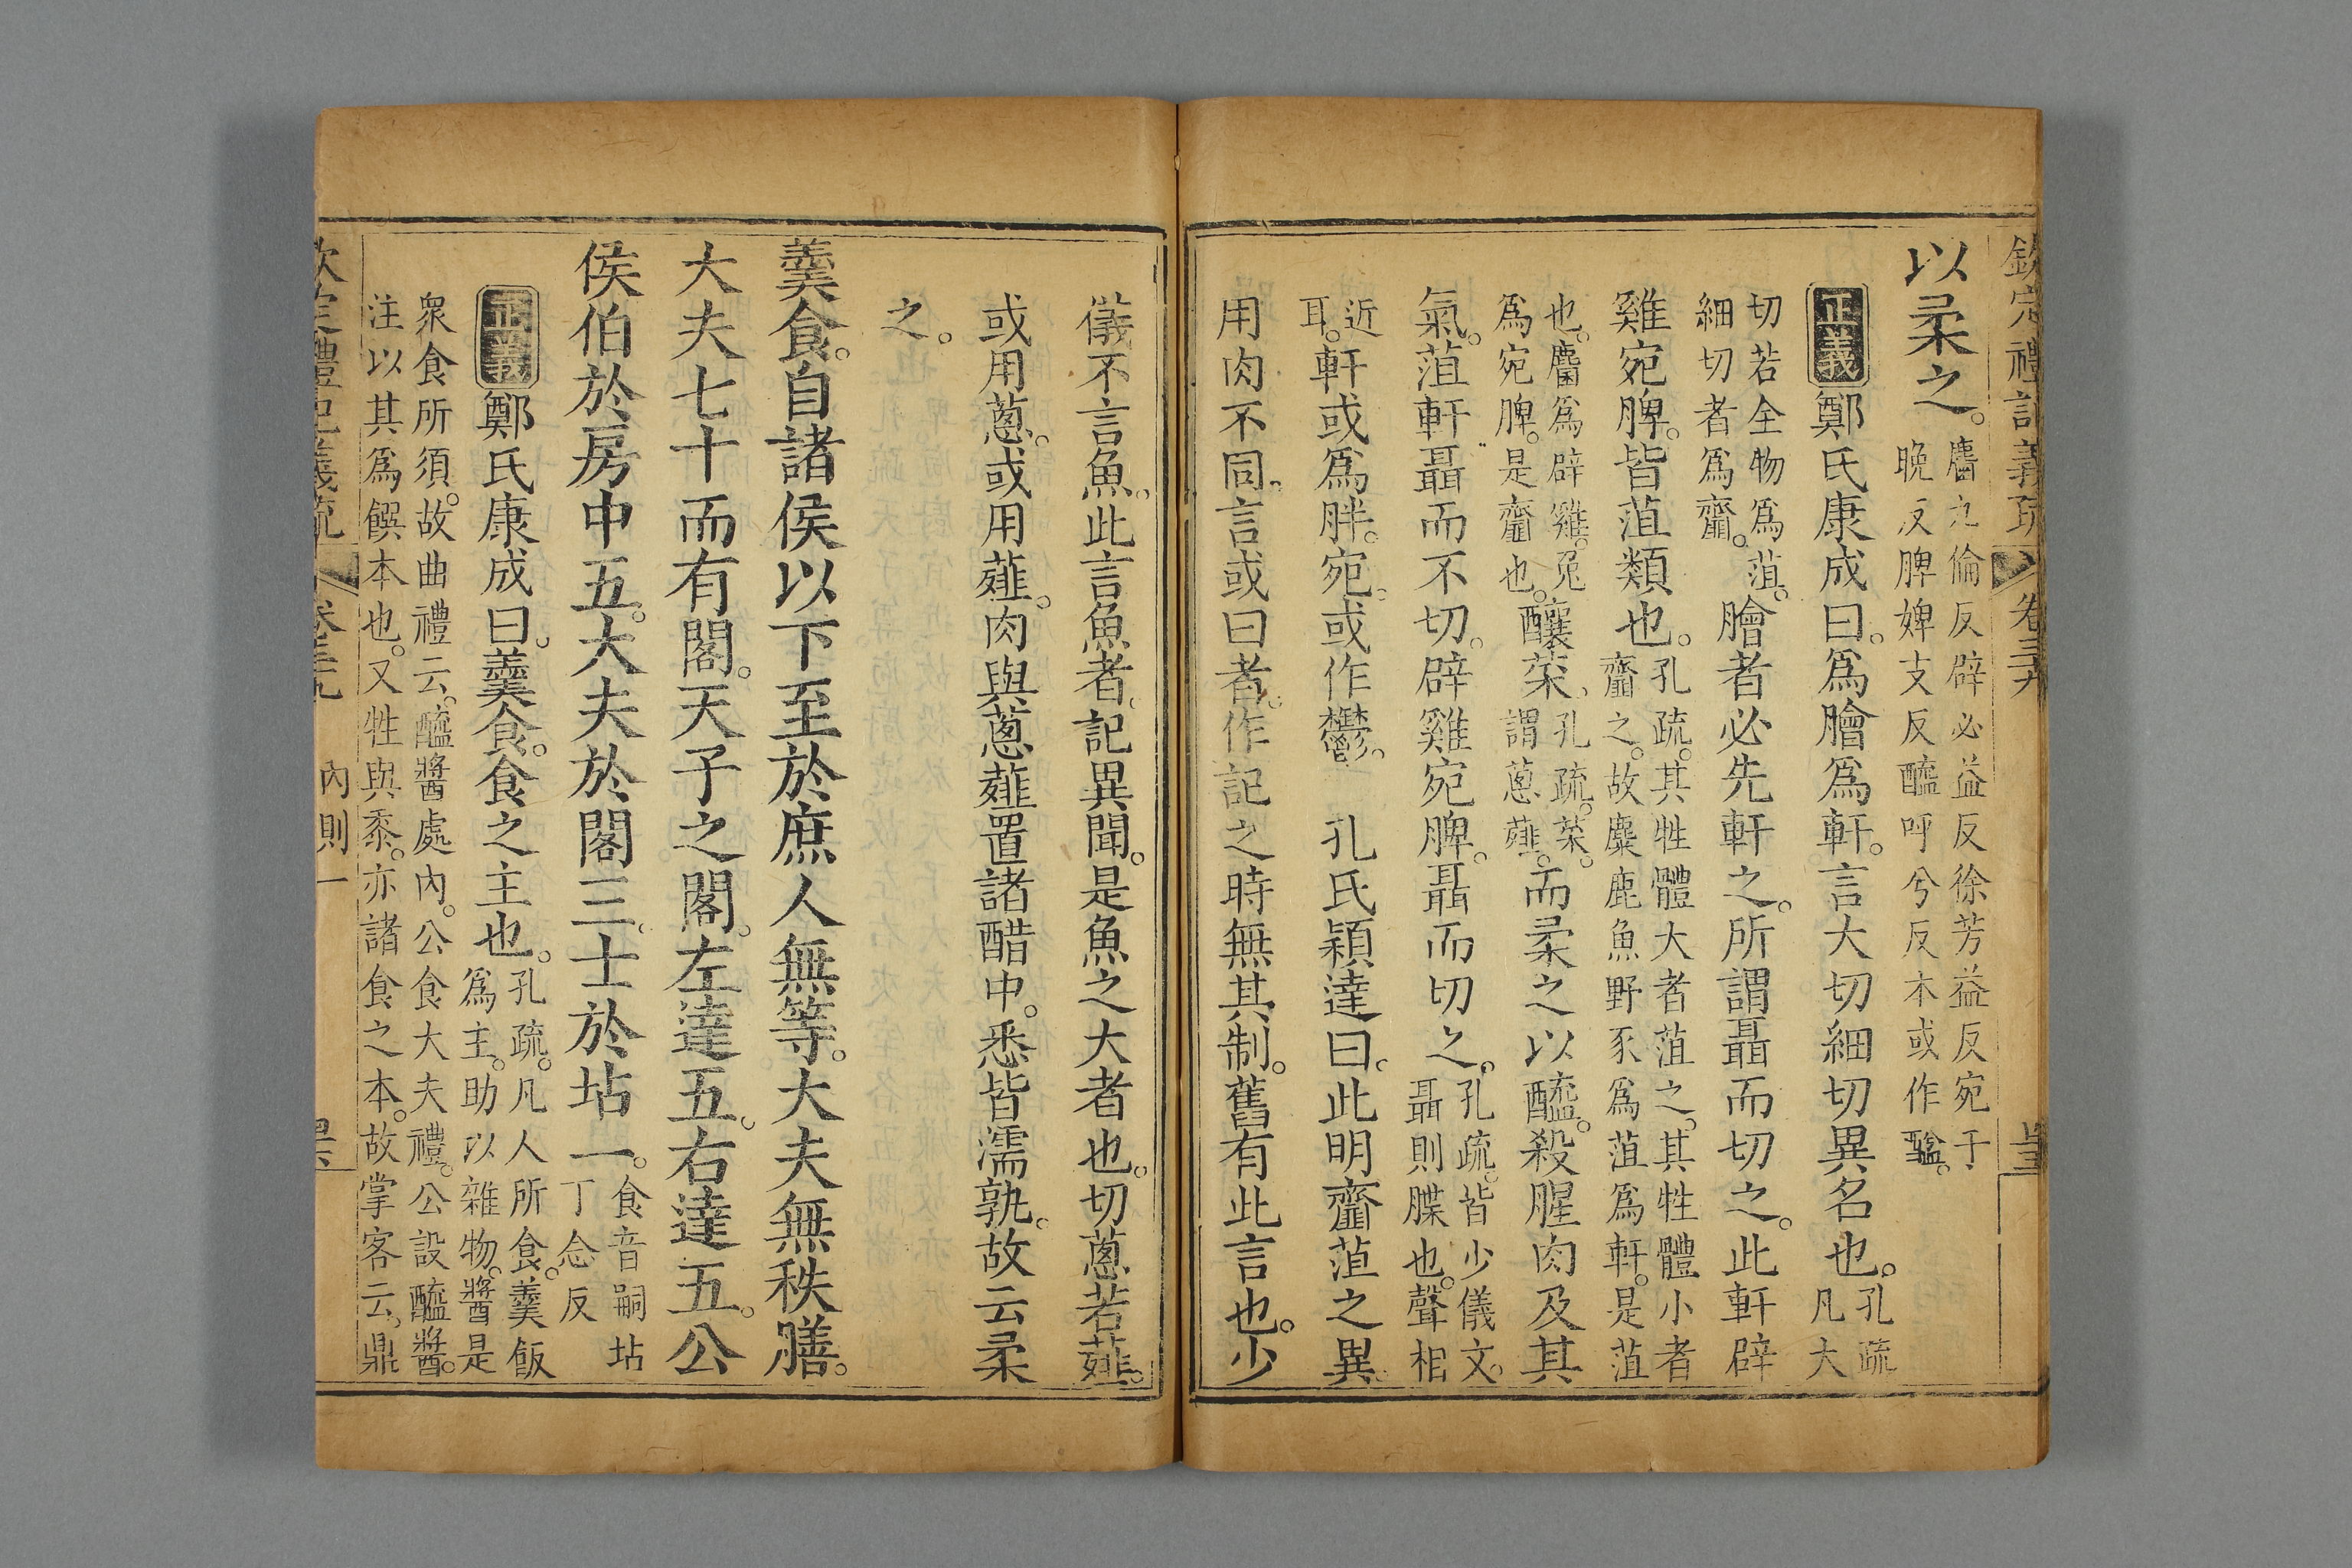 欽定禮記義疏 卷三十九
以柔之。麕九倫反辟必益反徐芳益反宛于
晚反脾婢支反醯呼兮反本或作醯。
正義 鄭氏康成曰。爲膾爲軒。言大切細切異名也。孔疏
凡大
切若全物爲菹。
細切者爲齏。膾者必先軒之。所謂聶而切之。此軒辟
雞宛脾。皆菹類也。孔疏。其牲體大者菹之。其牲體小者
齏之。故麋鹿魚野豕爲菹爲軒。是菹
也。麕爲辟雞。兔
爲宛脾。是齏也。釀菜、孔疏。菜。
謂蔥薤。而柔之以醯。殺腥肉及其
氣。菹軒聶而不切。辟雞宛脾。聶而切之。孔疏。皆少儀文。
聶則䐑也。聲相
近
耳。軒或爲胖。宛。或作鬱。 孔氏穎達曰。此明齏菹之異。
用肉不同。言或曰者。作記之時無其制。舊有此言也。少
儀不言魚。此言魚者。記異聞。是魚之大者也。切蔥若薤。
或用蔥。或用薤。肉與蔥薤置諸醋中。悉皆濡孰。故云柔
之。
羹食。自諸侯以下至於庶人無等。大夫無秩膳。
大夫七十而有閣。天子之閣。左達五。右達五。公
侯伯於房中五。大夫於閣三。士於坫一。食音嗣坫
丁念反
正義 鄭氏康成曰。羹食。食之主也。孔疏。凡人所食。羹飯
爲主。助以雜物。醬是
衆食所須。故曲禮云。醯醬處內。公食大夫禮。公設醯醬。
注以其爲饌本也。又牲與黍。亦諸食之本。故掌客云。鼎
欽定禮記義疏 卷三十九 內則一